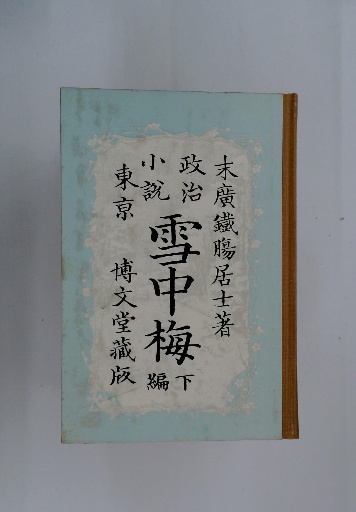 末廣鐵腸居士著
政治
小説
雪中梅
下編
東亰 博文堂藏版